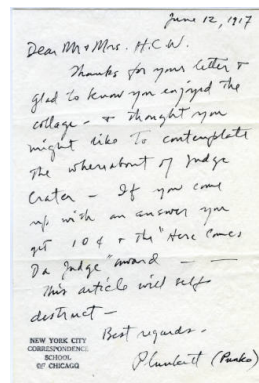 June 12, 1917
Dear Mr + Mrs. H.C.W.
Thanks for your letter +
glad to know you enjoyed the
collage - + thought you
might like to contemplate
the whereabout of Judge
Crater - If you come
up with an answer you
get 10¢ + the "Here Comes
Da Judge" award - -
This article will self
distruct -
Best regards -
(Punko)
NEW YORK CITY
CORRESPONDENCE
SCHOOL
OF CHICAGO